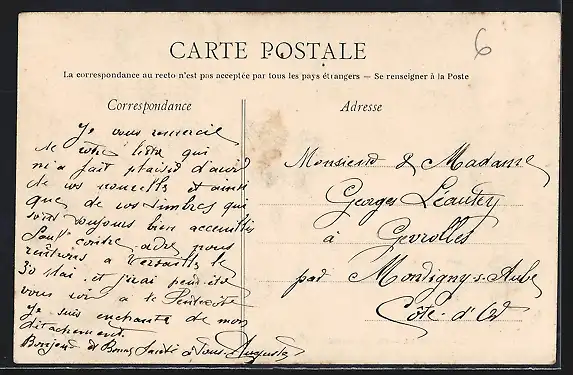 6
CARTE POSTALE
La correspondance au recto n'est pas acceptée par tous les pays étrangers — Se renseigner à la Poste
Correspondance
Je vous remercie
de votre lettre qui
m'a fait plaisir d'avoir
de vos nouvelles et ainsi
que de vos timbres qui
sont toujours bien accueillis
Sauf contre ordre nous
rentrerons a Versailles le
30 Mai et j'irai peut être
vous voir à la Pentecôte
Je suis enchanté de mon
détachement
Bonjour et Bonne Santé à Tous Auguste
Adresse
Monsieur & Madame
Georges Léautey
à Gevrolles
par Montigny-s-Aube
Côte-d'Or